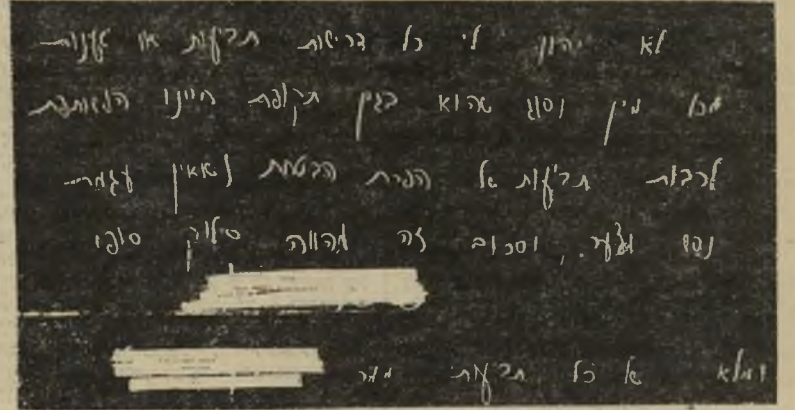 לא יהיו לי כל דרישות תביעות או טענות
מכל מין וסוג שהוא בגין תקופת חיינו המשותפת
לרבות תביעות על הפרת הבטחת נשואין עגמת
נפש וצער, וסכום זה מהווה סילוק סופי
ומלא של כל תביעותי